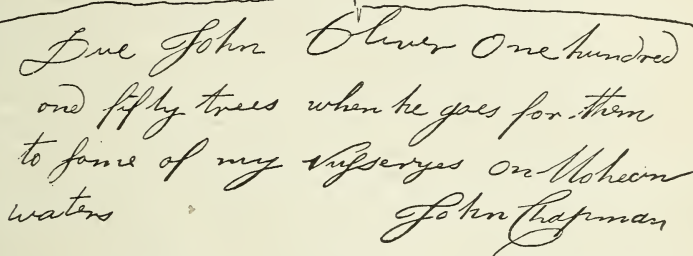 Due John Oliver One hundred
and fifty trees when he goes for them
to some of my Nusseryes on Mohecn
waters John Chapman